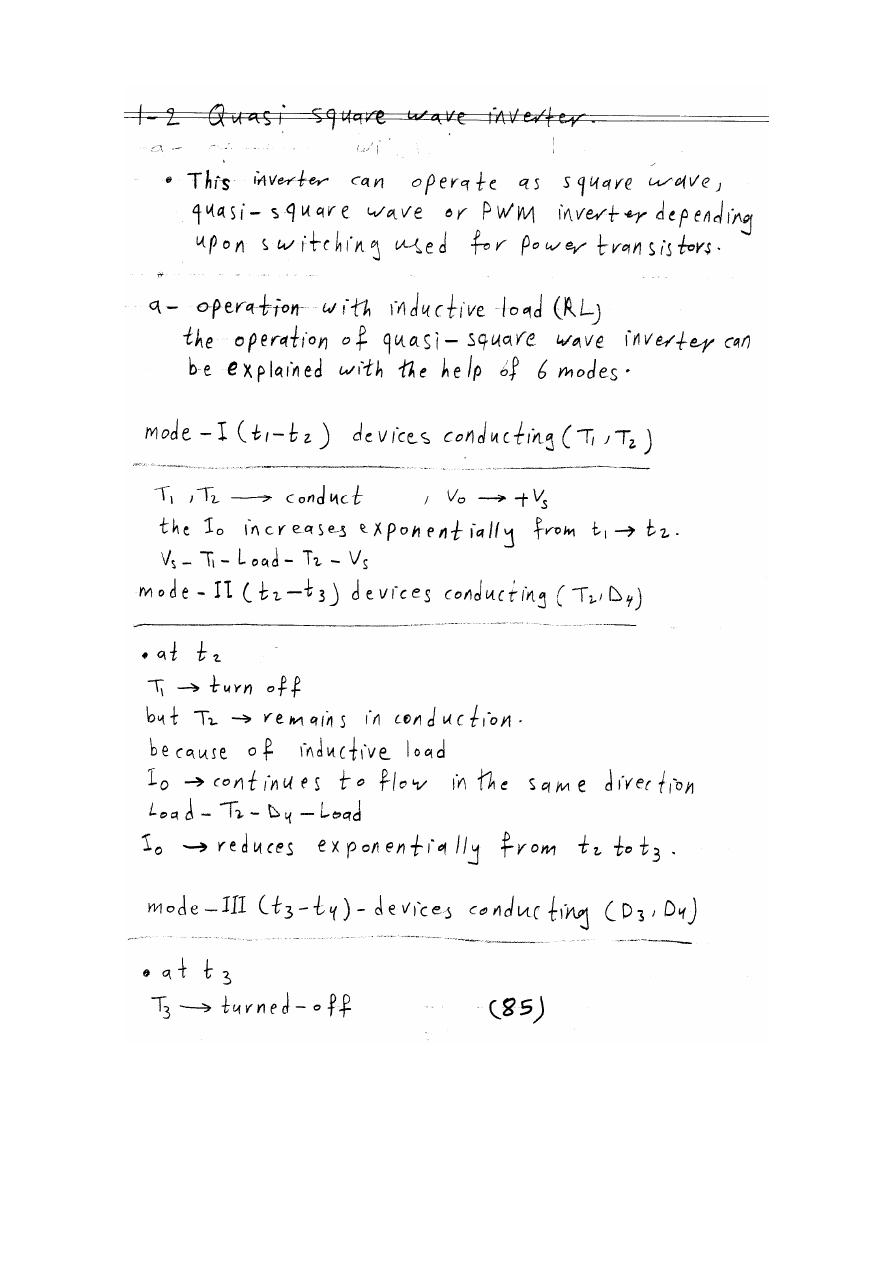 1-2 Quasi square wave inverter.
a-
• This inverter can operate as square wave,
quasi-square wave or PWM inverter depending
upon switching used for power transistors.
a- operation with inductive load (RL)
the operation of quasi-square wave inverter can
be explained with the help of 6 modes.
mode-I (t1-t2) devices conducting (T1, T2)
T1, T2 → conduct , Vo → +Vs
the Io increases exponentially from t1 → t2.
Vs - T1 - Load - T2 - Vs
mode-II (t2-t3) devices conducting (T2, D4)
• at t2
T1 → turn off
but T2 → remains in conduction.
because of inductive load
Io → continues to flow in the same direction
Load - T2 - D4 - Load
Io → reduces exponentially from t2 to t3.
mode-III (t3-t4) - devices conducting (D3, D4)
• at t3
T3 → turned-off (85)